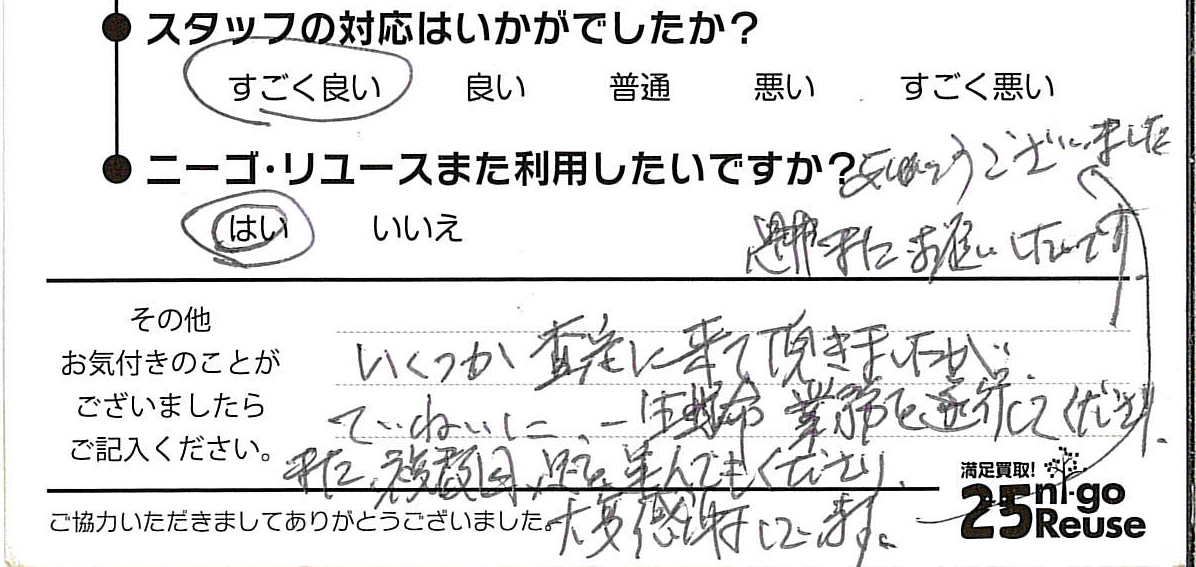 スタッフの対応はいかがでしたか?
すごく良い 良い 普通 悪い すごく悪い
ニーゴ・リユースまた利用したいですか?
はい いいえ
その他
お気付きのことが
ございましたら
ご記入ください。
いくつか査定に来て頂きましたが、
ていねいに、一生懸命業務を遂行してくださり、
また、複数回、足を運んでもくださり、
大変感謝しています。
ありがとうございました
是非またお願いしたいです
満足買取!
25 ni-go
Reuse
ご協力いただきましてありがとうございました。